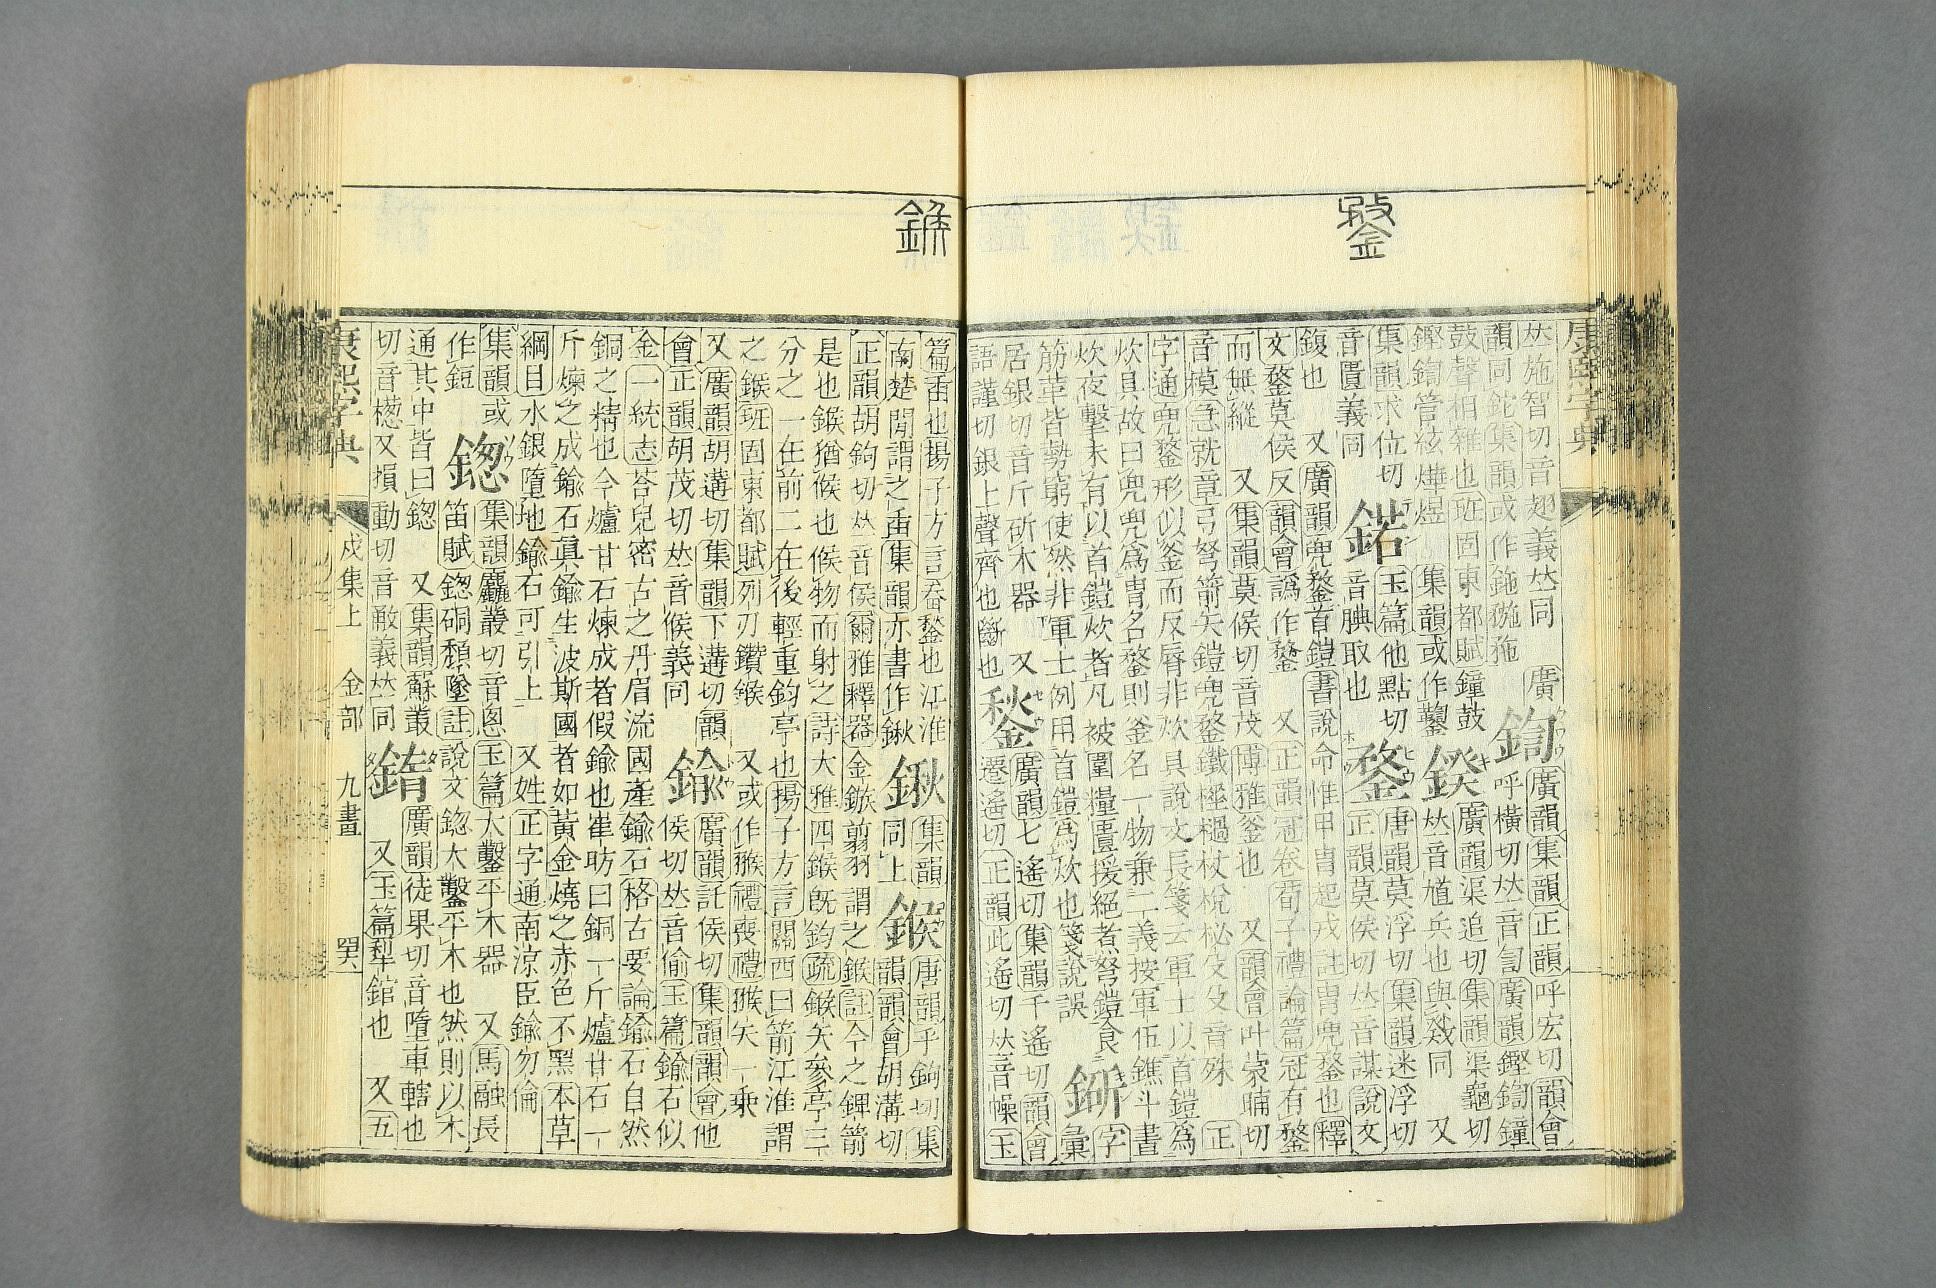 鍪
鍭
康熙字典
𠀤施智切音翅義𠀤同 廣
韻同鉈集韻或作鉇
鍧
廣韻集韻正韻呼宏切韻會
呼橫切𠀤音訇廣韻鏗鍧鐘
鼓聲相雜也班固東都賦鐘鼓
鏗鍧管絃燁煜 集韻或作
鍨
廣韻渠追切集韻渠龜切
𠀤音馗兵也與戣同 又
集韻求位切
音匱義同
鍩
玉篇他點切
音腆取也
鍪
唐韻莫浮切集韻迷浮切
正韻莫侯切𠀤音謀說文
鍑也 又廣韻兜鍪首鎧書說命惟甲冑起戎註冑兜鍪也釋
文鍪莫侯反韻會譌作鍫 又正韻冠卷荀子禮論篇冠有鍪
而無縱 又集韻莫候切音茂博雅釜也 又韻會叶蒙晡切
音模急就章弓弩箭矢鎧兜鍪鐵棰檛杖棁柲殳殳音殊 正
字通兜鍪形似釜而反脣非炊具說文長箋云軍士以首鎧爲
炊具故曰兜兜爲冑名鍪則釜名一物兼二義按軍伍鐎斗晝
炊夜擊未有以首鎧炊者凡被圍糧匱援絕煮弩鎧食
筋革皆勢窮使然非軍士例用首鎧爲炊也箋說誤
字
彙
居銀切音斤斫木器 又
語謹切銀上聲齊也斷也
鍫
廣韻七遙切集韻千遙切韻會
遷遙切正韻此遙切𠀤音幧玉
篇臿也揚子方言臿鍫也江淮
南楚閒謂之臿集韻亦書作鍬
鍬
集韻
同上
鍭
唐韻乎鉤切集
韻韻會胡溝切
正韻胡鉤切𠀤音侯爾雅釋器金鏃翦羽謂之鍭註今之錍箭
是也鍭猶候也候物而射之詩大雅四鍭旣鈞疏鍭矢參亭三
分之一在前二在後輕重鈞亭也揚子方言關西曰箭江淮謂
之鍭班固東都賦列刃鑽鍭 又或作翭禮喪禮翭矢一乘
又廣韻胡遘切集韻下遘切韻
會正韻胡茂切𠀤音候義同
鍮
廣韻託侯切集韻韻會他
侯切𠀤音偷玉篇鍮石似
金一統志荅兒密古之丹眉流國產鍮石格古要論鍮石自然
銅之精也今爐甘石煉成者假鍮也崔昉曰銅一斤爐甘石一
斤煉之成鍮石眞鍮生波斯國者如黃金燒之赤色不黑本草
綱目水銀墮地鍮石可引上 又姓正字通南涼臣鍮勿倫
集韻或
作鋀
鍯
集韻麤叢切音悤玉篇大鑿平木器 又馬融長
笛賦鍯硐隤墜註說文鍯大鑿平木也然則以木
通其中皆曰鍯 又集韻蘇叢
切音檧又損動切音敵義𠀤同
廣韻徒果切音墮車轄也
又玉篇犂錧也 又五
康熙字典 戌集上 金部 九畫